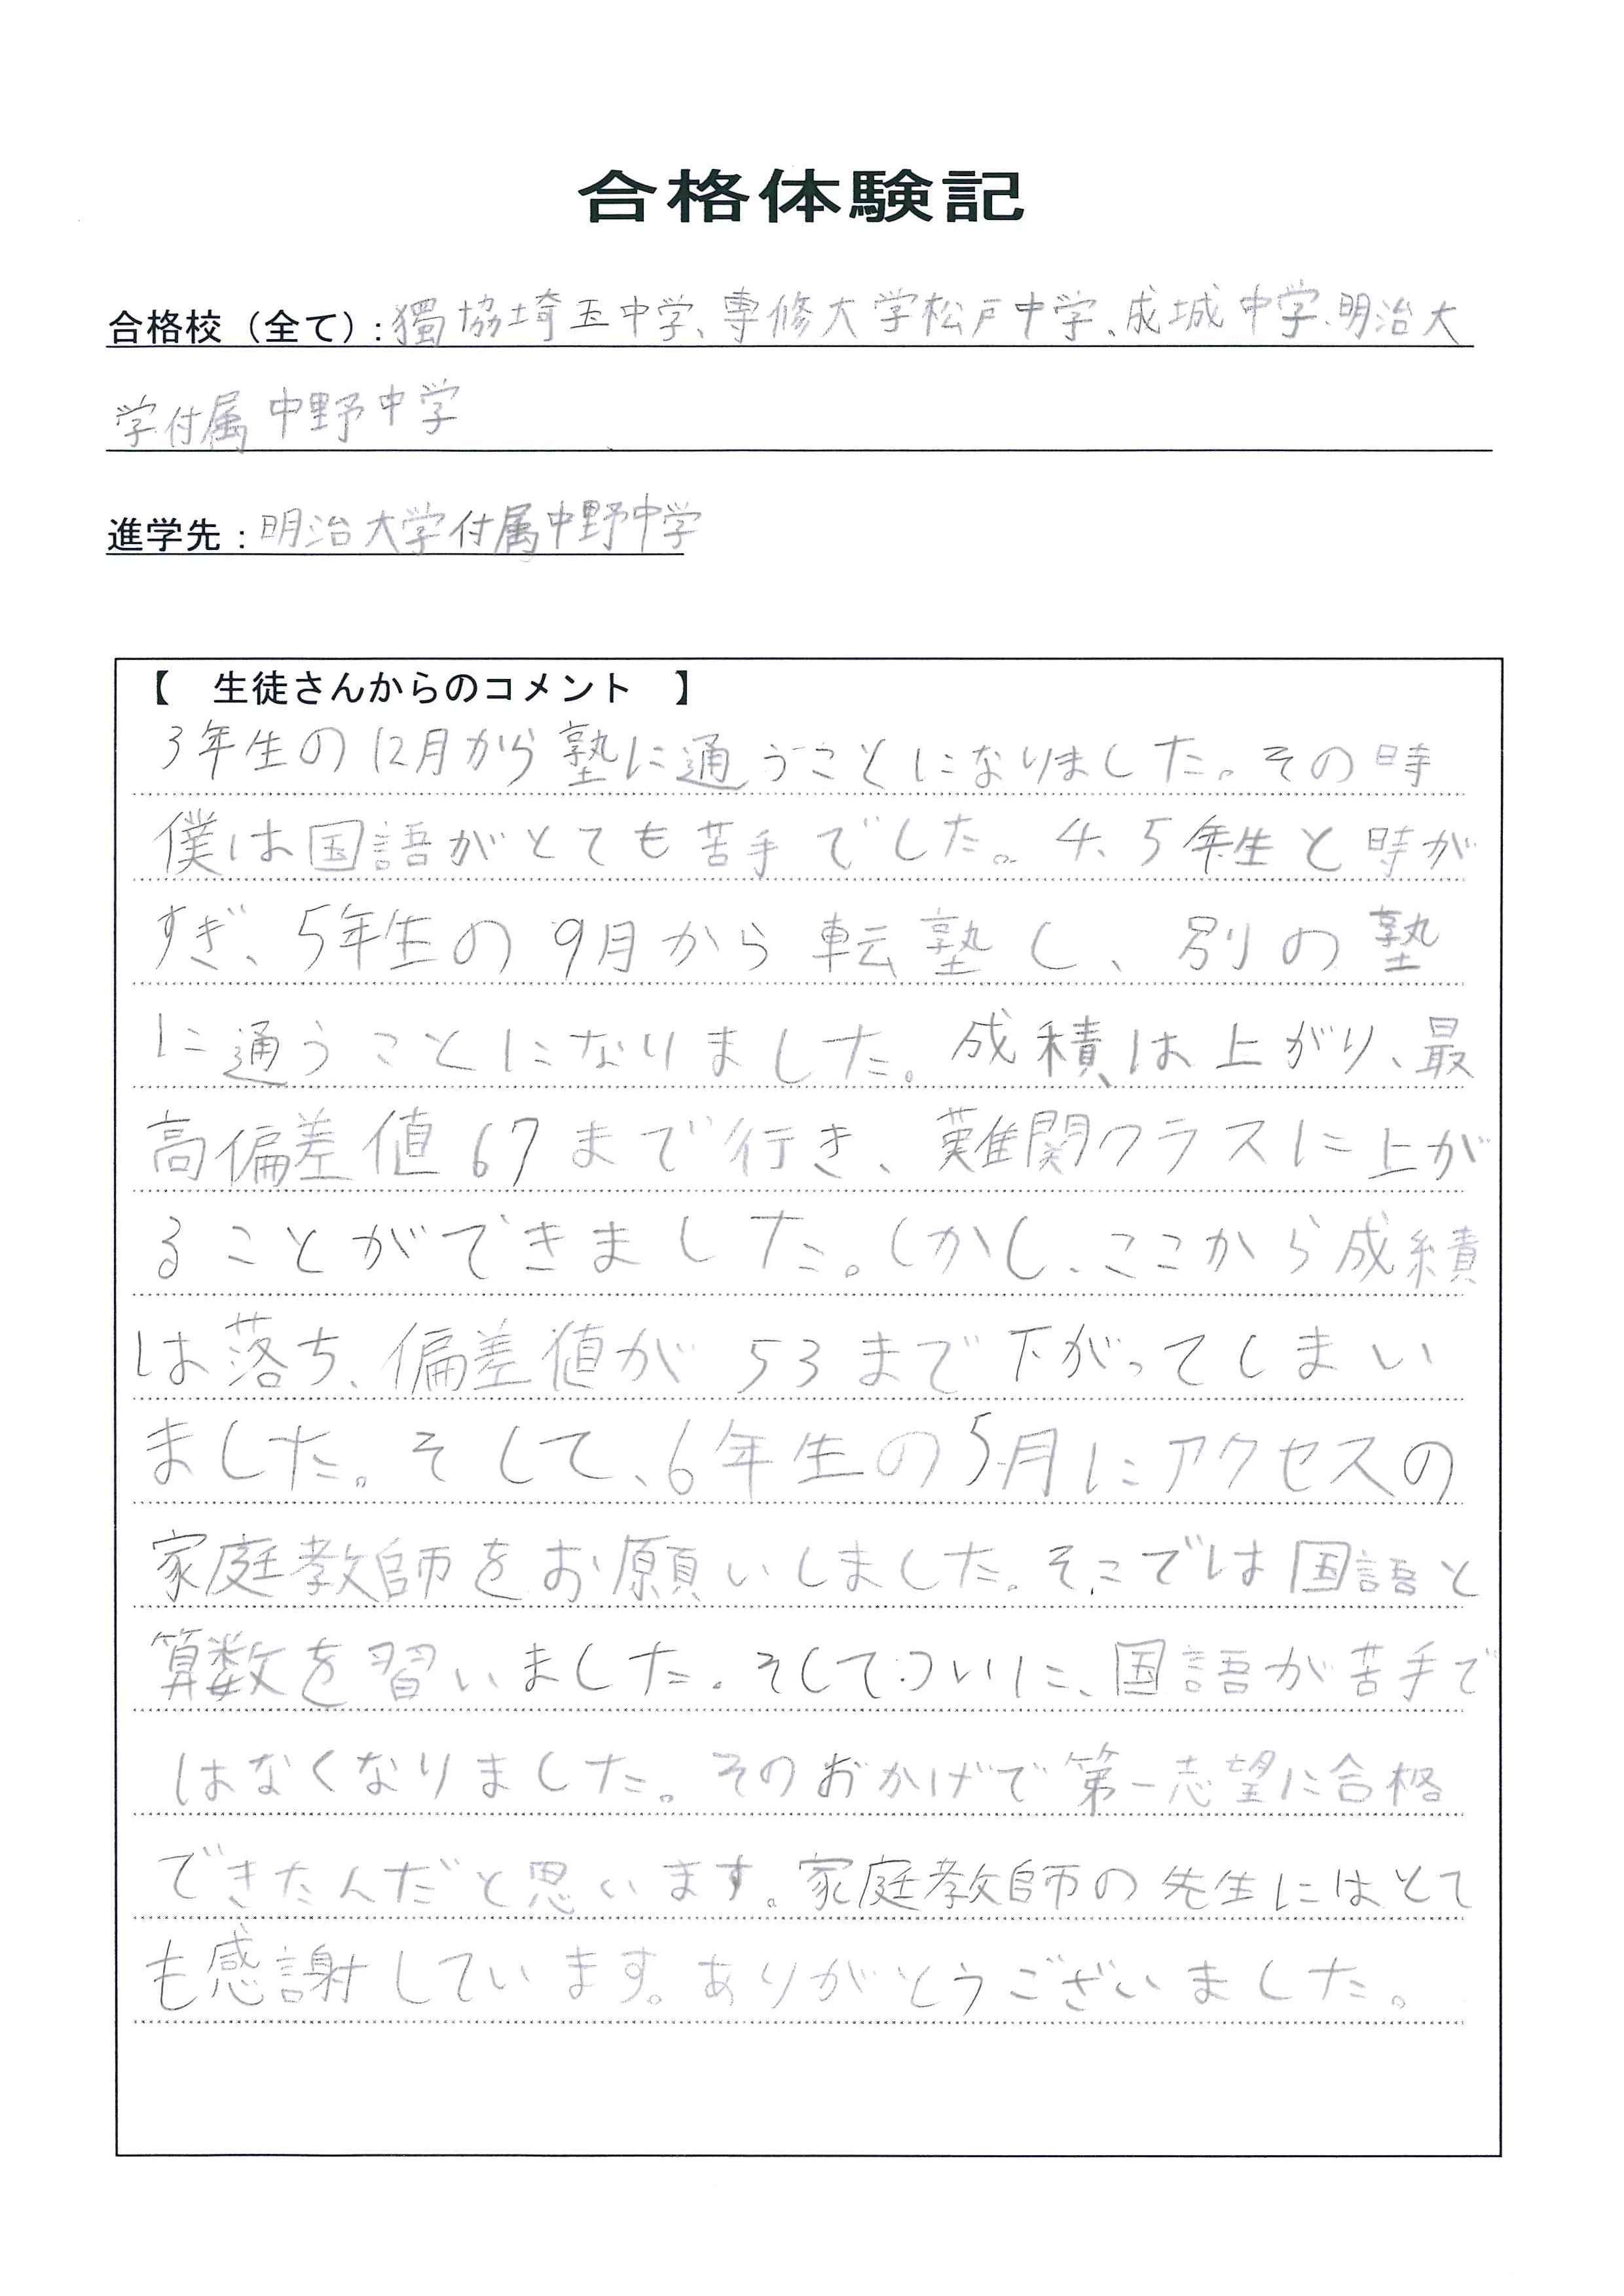 合格体験記
合格校（全て）：獨協埼玉中学、専修大学松戸中学、成城中学、明治大
学付属中野中学
進学先：明治大学付属中野中学
【　生徒さんからのコメント　】
3年生の12月から塾に通うことになりました。その時
僕は国語がとても苦手でした。4、5年生と時が
すぎ、5年生の9月から転塾し、別の塾
に通うことになりました。成積は上がり、最
高偏差値67まで行き、難関クラスに上が
ることができました。しかし、ここから成績
は落ち、偏差値が53まで下がってしまい
ました。そして、6年生の5月にアクセスの
家庭教師をお願いしました。そこでは国語と
算数を習いました。そしてついに、国語が苦手で
はなくなりました。そのおかげで第一志望に合格
できたんだと思います。家庭教師の先生にはとて
も感謝しています。ありがとうございました。